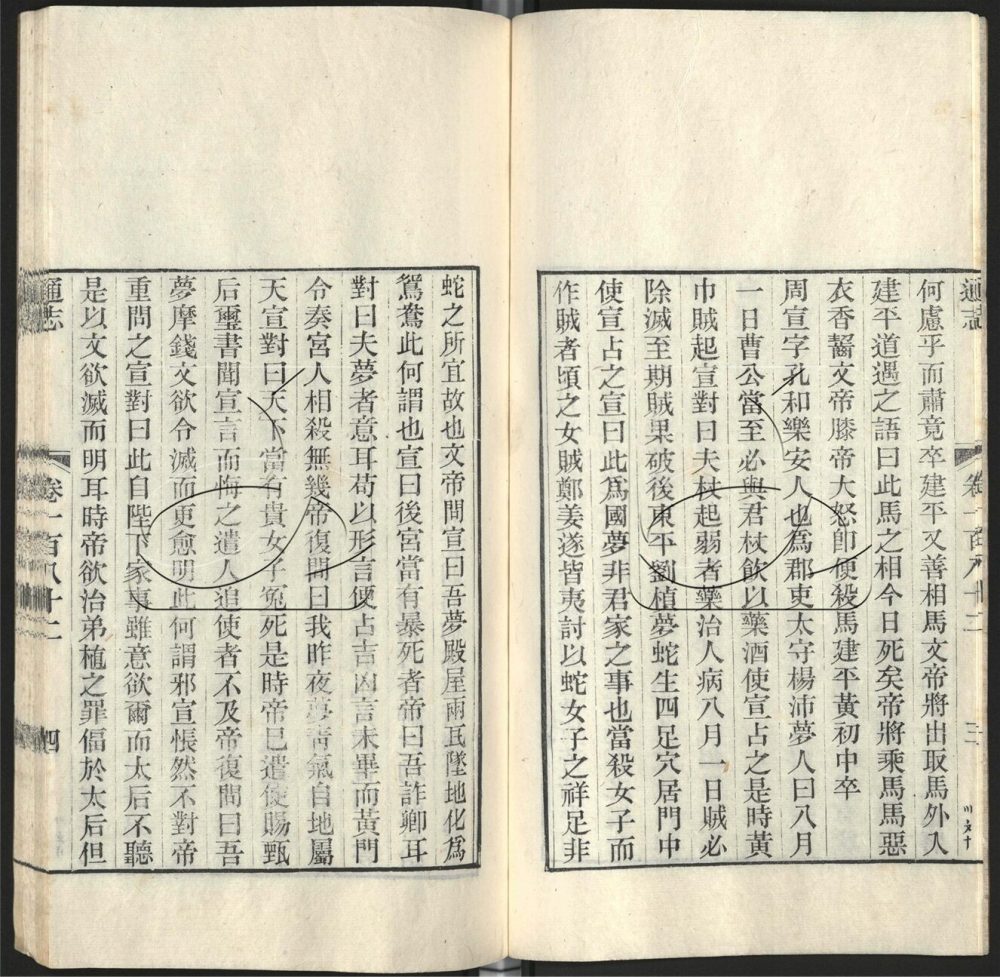 通志
卷一百八十二
三
何慮乎而肅竟卒建平又善相馬文帝將出取馬外入
建平道遇之語曰此馬之相今日死矣帝將乘馬馬惡
衣香齧文帝膝帝大怒卽便殺馬建平黃初中卒
周宣字孔和樂安人也爲郡吏太守楊沛夢人曰八月
一日曹公當至必與君杖飲以藥酒使宣占之是時黃
巾賊起宣對曰夫杖起弱者藥治人病八月一日賊必
除滅至期賊果破後東平劉楨夢蛇生四足穴居門中
使宣占之宣曰此爲國夢非君家之事也當殺女子而
作賊者頃之女賊鄭姜遂皆夷討以蛇女子之祥足非
蛇之所宜故也文帝問宣曰吾夢殿屋兩瓦墜地化爲
鴛鴦此何謂也宣曰後宮當有暴死者帝曰吾詐卿耳
對曰夫夢者意耳苟以形言便占吉凶言未畢而黃門
令奏宮人相殺無幾帝復問曰我昨夜夢靑氣自地屬
天宣對曰天下當有貴女子冤死是時帝已遣使賜甄
后璽書聞宣言而悔之遣人追使者不及帝復問曰吾
夢摩錢文欲令滅而更愈明此何謂邪宣悵然不對帝
重問之宣對曰此自陛下家事雖意欲爾而太后不聽
是以文欲滅而明耳時帝欲治弟植之罪偪於太后但
通志
卷一百八十二
四